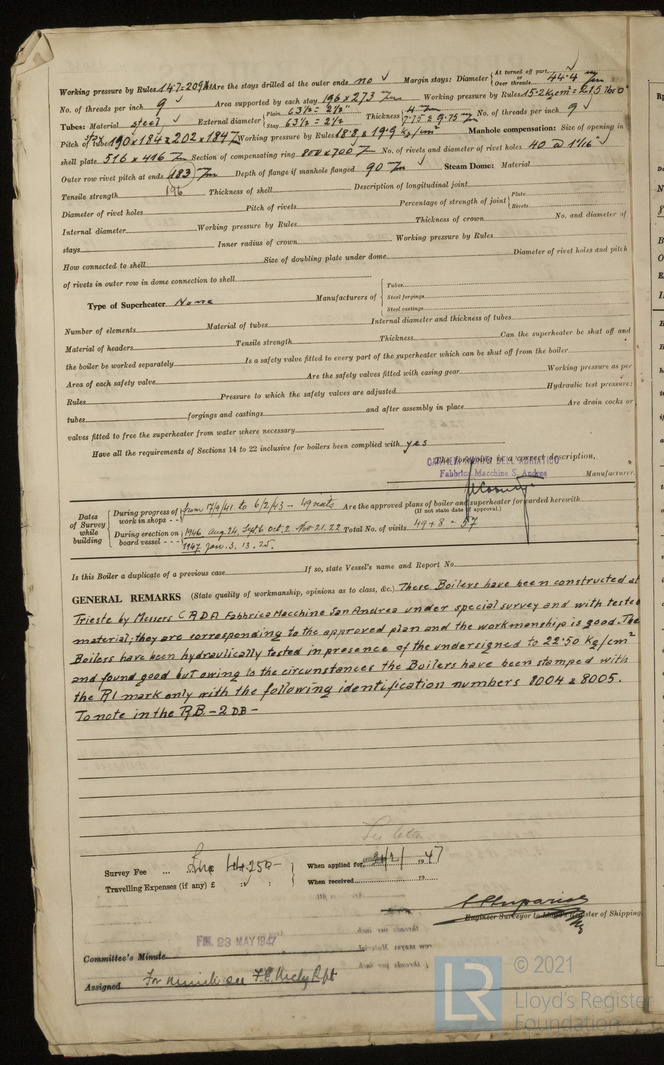 Working pressure by Rules 147 = 209 lbs Are the stays drilled at the outer ends no ✓ Margin stays: Diameter { At turned off part, or Over threads 44.4 m/m
No. of threads per inch 9 ✓ Area supported by each stay 196 x 273 m/m Working pressure by Rules 15.2 Kg/cm² = 215 lbs □"
Tubes: Material steel ✓ External diameter { Plain 63½ = 2½" Stay 63½ = 2½ Thickness { 4 m/m 7.75 & 9.75 m/m No. of threads per inch 9 ✓
Pitch of tubes 190 x 184 & 202 x 184 m/m Working pressure by Rules 18.8 & 19.9 kg/cm² Manhole compensation: Size of opening in
shell plate 516 x 416 m/m Section of compensating ring 800 x 700 m/m No. of rivets and diameter of rivet holes 40 @ 1 1/16 ✓
Outer row rivet pitch at ends 183 m/m Depth of flange if manhole flanged 90 m/m ✓ Steam Dome: Material
196
Tensile strength Thickness of shell Description of longitudinal joint
Diameter of rivet holes Pitch of rivets Percentage of strength of joint { Plate Rivets
Internal diameter Working pressure by Rules Thickness of crown No. and diameter of
stays Inner radius of crown Working pressure by Rules
How connected to shell Size of doubling plate under dome Diameter of rivet holes and pitch
of rivets in outer row in dome connection to shell
Type of Superheater None Manufacturers of { Tubes Steel forgings Steel castings
Number of elements Material of tubes Internal diameter and thickness of tubes
Material of headers Tensile strength Thickness Can the superheater be shut off and
the boiler be worked separately Is a safety valve fitted to every part of the superheater which can be shut off from the boiler
Area of each safety valve Are the safety valves fitted with easing gear Working pressure as per
Rules Pressure to which the safety valves are adjusted Hydraulic test pressure:
tubes forgings and castings and after assembly in place Are drain cocks or
valves fitted to free the superheater from water where necessary
Have all the requirements of Sections 14 to 22 inclusive for boilers been complied with yes
The foregoing is a correct description,
CANTIERI RIUNITI DELL'ADRIATICO
Fabbrica Macchine S. Andrea Manufacturer.
Dates of Survey while building { During progress of work in shops - - from 17/9/41 to 6/2/43 - 49 visits Are the approved plans of boiler and superheater forwarded herewith (If not state date of approval.)
During erection on board vessel - - - 1946 Aug. 24, Sept 6 Oct. 2. Nov 21. 22 Total No. of visits 49 + 8 = 57
1947 Jan. 3. 13. 25.
Is this Boiler a duplicate of a previous case If so, state Vessel's name and Report No.
GENERAL REMARKS (State quality of workmanship, opinions as to class, &c.) These Boilers have been constructed at
Trieste by Messers CRDA Fabbrica Macchine San Andrea under special survey and with tested
material; they are corresponding to the approved plan and the workmanship is good. The
Boilers have been hydraulically tested in presence of the undersigned to 22.50 Kg/cm²
and found good but owing to the circumstances the Boilers have been stamped with
the RI mark only with the following identification numbers 8004 & 8005.
To note in the R.B. - 2 DB -
See letter
Survey Fee ... Lire 14.250- When applied for, 21/2/ 1947
Travelling Expenses (if any) £ ✓ : When received 19
Engineer Surveyor to Lloyd's Register of Shipping
FRI. 23 MAY 1947
Committee's Minute
Assigned For minute see F.E. Mchy Rpt
LR © 2021
Lloyd's Register
Foundation